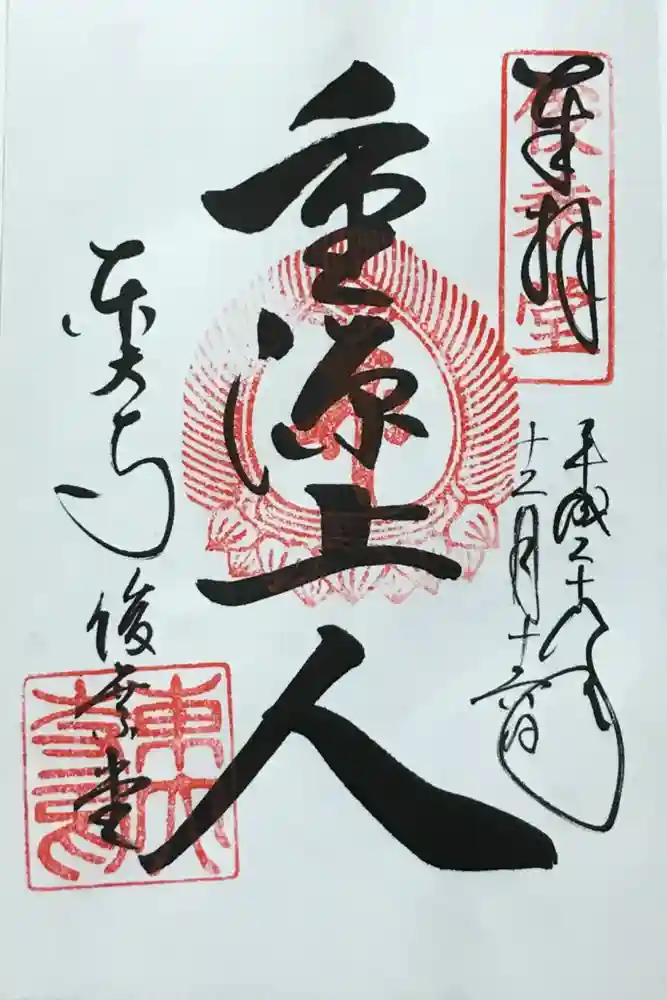 奉拝
俊乗堂
平成二十八年
十二月十六日
重源上人
東大寺
俊乗堂
東大
寺